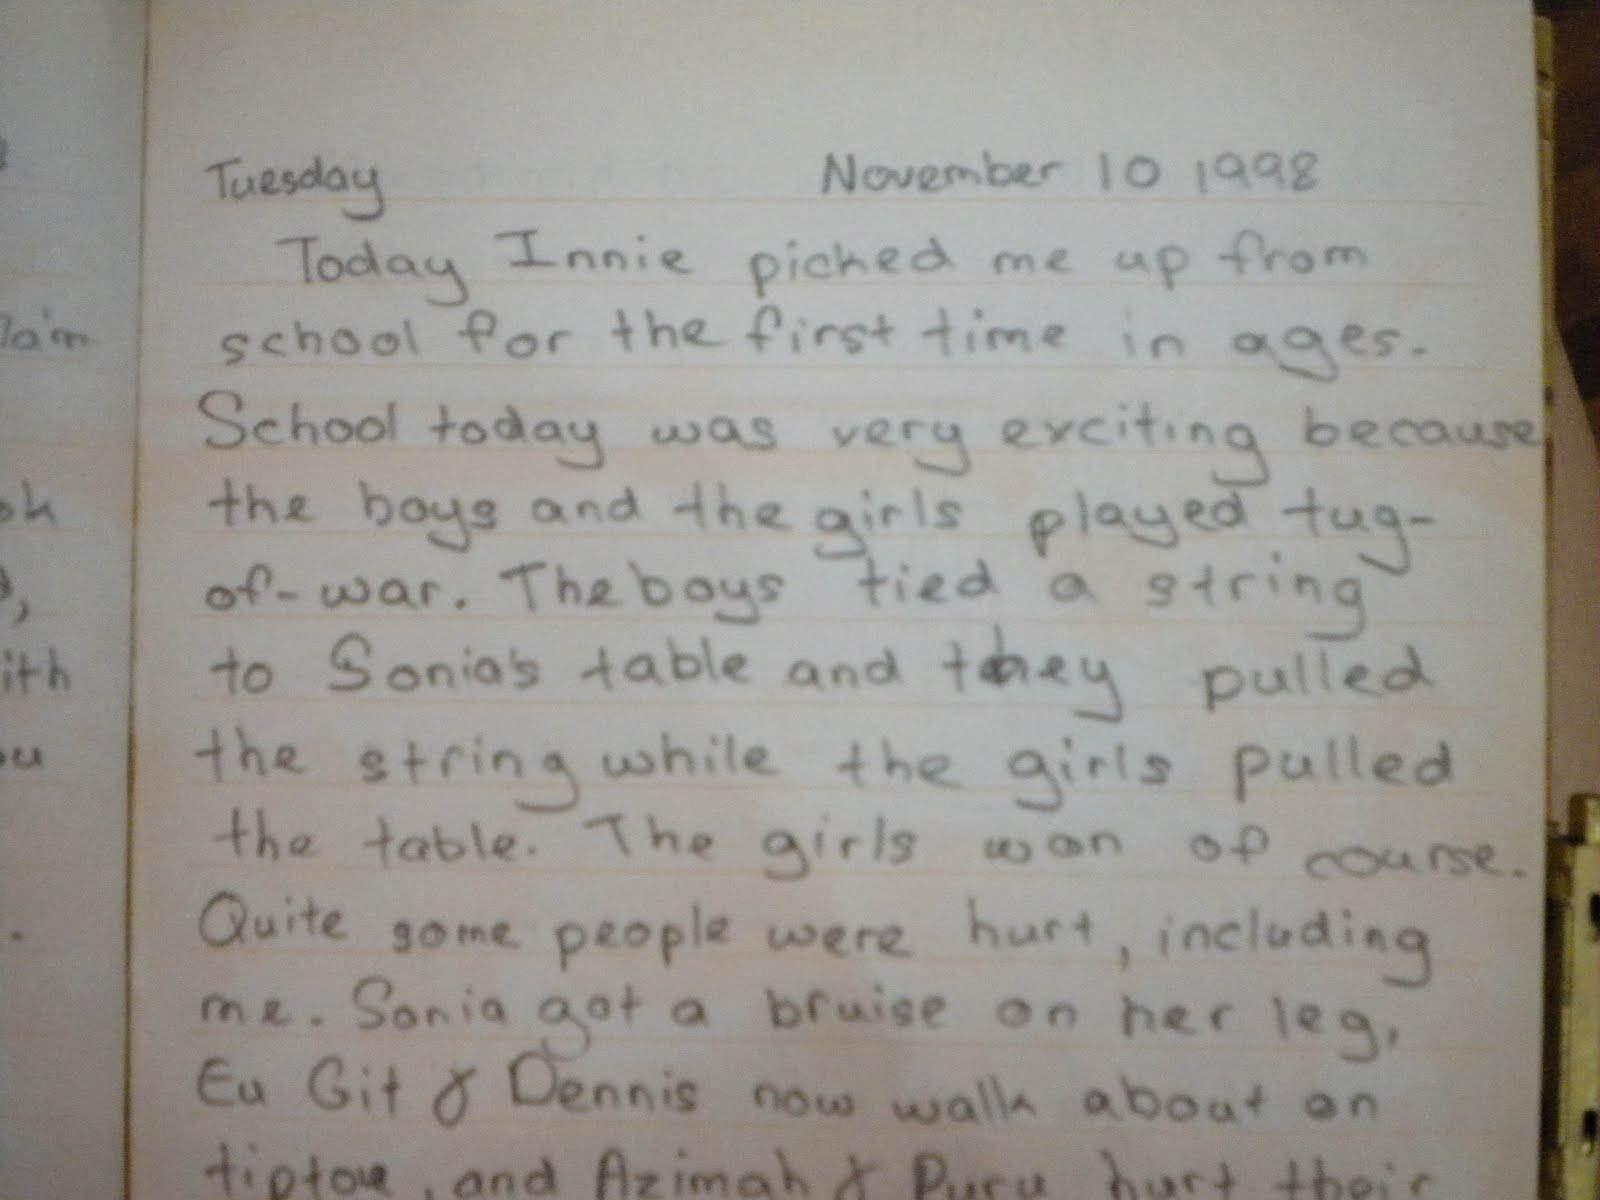 Tuesday November 10 1998
Today Innie picked me up from
school for the first time in ages.
School today was very exciting because
the boys and the girls played tug-
of-war. The boys tied a string
to Sonia's table and they pulled
the string while the girls pulled
the table. The girls won of course.
Quite some people were hurt, including
me. Sonia got a bruise on her leg,
Eu Git & Dennis now walk about on
tiptoe, and Azimah & Puru hurt their